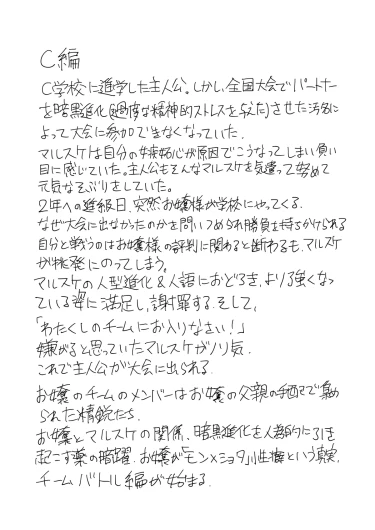 C編
C学校に進学した主人公。しかし、全国大会でパートナー
を暗黒進化(過度な精神的ストレスを与えた)させた汚名に
よって大会に参加できなくなっていた。
マルスケは自分の嫉妬心が原因でこうなってしまい負い
目に感じていた。主人公もそんなマルスケを気遣って努めて
元気なそぶりをしていた。
2年への進級日、突然お嬢様が学校にやってくる。
なぜ大会に出なかったのかを問いつめられ勝負を持ちかけられる
自分と戦うのはお嬢様の評判に関わると断わるも、マルスケ
が挑発にのってしまう。
マルスケの人型進化&人語におどろき、より強くなっ
ている姿に満足し、謝罪する。そして、
「わたくしのチームにお入りなさい!」
嫌がると思っていたマルスケがノリ気。
これで主人公が大会に出られる。
お嬢のチームのメンバーはお嬢の父親の手腕で集め
られた精鋭たち。
お嬢とマルスケの関係、暗黒進化を人為的に引き
起こす薬の暗躍、お嬢が「モン×ショタ」性癖という真実、
チームバトル編が始まる。